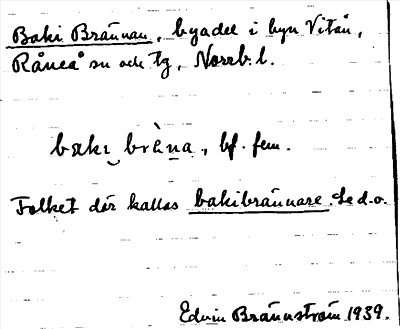 Baki Brännan, byadel i byn Vitån,
Råneå sn och tg, Norrb. l.
bakı brèna, bf. fem.
Folket där kallas bakibrännare. Se d.o.
Edvin Brännström 1939.